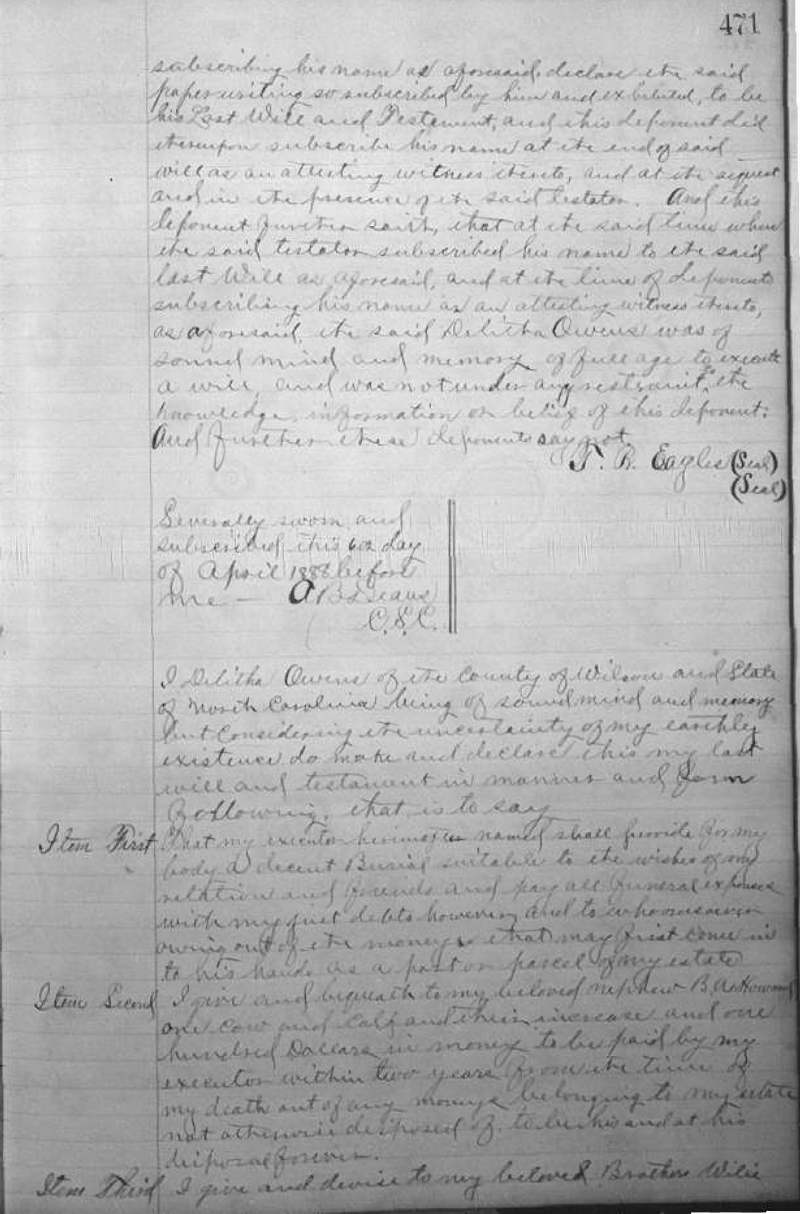 471
subscribing his name as aforesaid, declare the said
paper writing so subscribed by him and exhibited, to be
his Last Will and Testament, and this deponent did
thereupon subscribe his name at the end of said
will as an attesting witness thereto, and at the request
and in the presence of the said testator. And this
deponent further saith, that at the said time when
the said testator subscribed his name to the said
last Will as aforesaid, and at the time of deponents
subscribing his name as an attesting witness thereto,
as aforesaid, the said Delitha Owens was of
sound mind and memory, of full age to execute
a will, and was not under any restraint, to the
knowledge, information or belief of this deponent:
And further these deponents say not,
T. R. Eagles (Seal)
(Seal)
Severally sworn and
subscribed, this day
of April 1888 before
me — A B Deans
C.S.C.
I Delitha Owens of the County of Wilson and State
of North Carolina being of sound mind and memory
but considering the uncertainty of my earthly
existence do make and declare this my last
will and testament in manner and form
following, that is to say
Item First That my executor hereinafter named shall provide for my
body a decent Burial suitable to the wishes of my
relation and friends and pay all funeral expenses
with my just debts however and to whomsoever
owing out of the moneys that may first come in
to his hands as a part or parcel of my estate
Item Second I give and bequeath to my beloved nephew B. A. Howard
one cow and calf and their increase and one
hundred Dollars in money to be paid by my
executor within two years from the time of
my death out of any moneys belonging to my estate
not otherwise disposed of. to be his and at his
disposal forever.
Item Third I give and devise to my beloved Brother Wilie